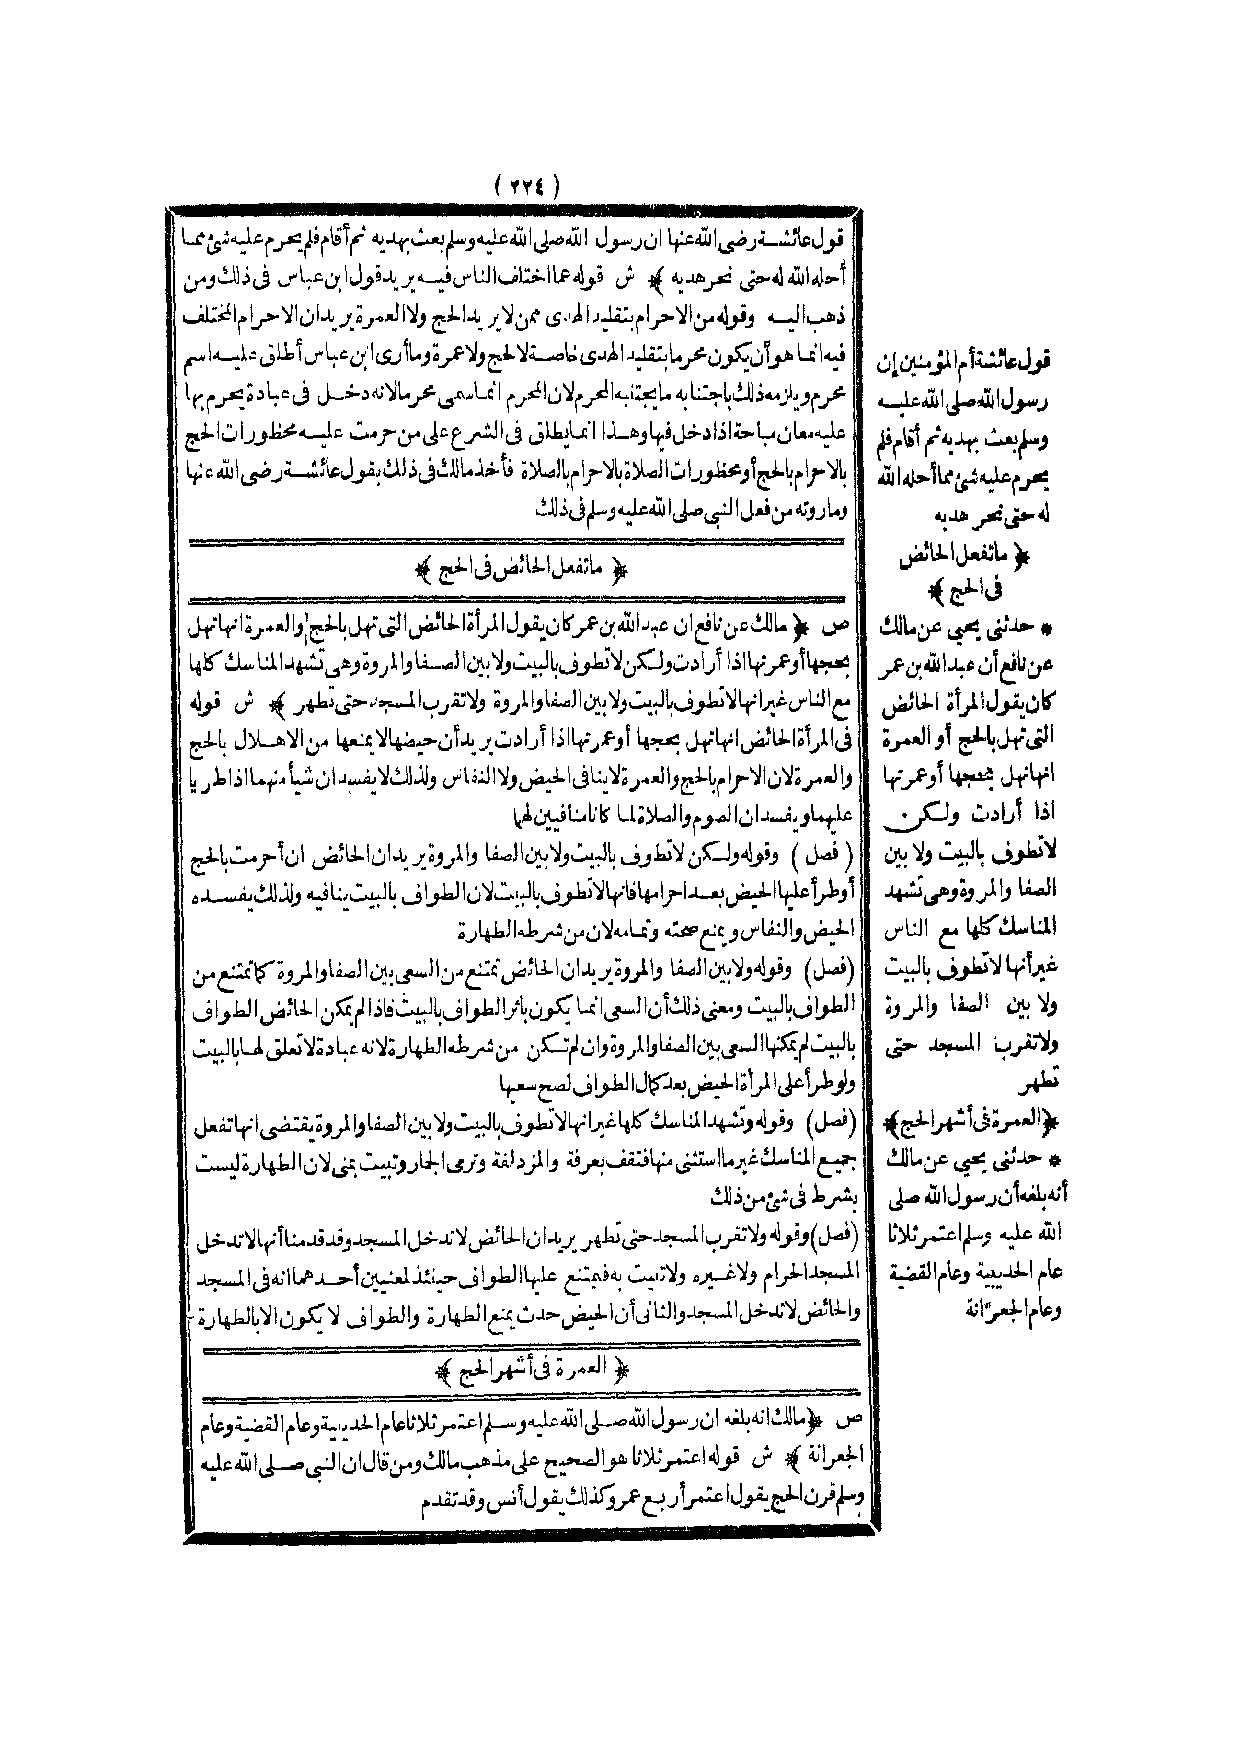 ( ٢٢٤ )
قول عائشة رضى الله عنها ان رسول الله صلى الله عليه وسلم بعث بهديه ثم أقام فلم يحرم عليه شئ مما
أحله الله له حتى نحر هديه ﴾ ش قوله عما اختلف الناس فيه يريد قول ابن عباس فى ذلك ومن
ذهب اليه وقوله من الاحرام بتقليد الهدى ممن لا يريد الحج ولا العمرة يريد ان الاحرام المختلف
فيه انما هو أن يكون محرما بتقليد الهدى خاصة لا لحج ولا عمرة وما أرى ابن عباس أطلق عليه اسم
محرم ويلزمه ذلك باجتنابه ما يجتنبه المحرم لان المحرم انما سمى محرما لانه دخل فى عبادة يحرم بها
عليه معان مباحة اذا دخل فيها وهذا انما يطلق فى الشرع على من حرمت عليه محظورات الحج
بالاحرام بالحج أو محظورات الصلاة بالاحرام بالصلاة فأخذ مالك فى ذلك بقول عائشة رضى الله عنها
وما روته من فعل النبى صلى الله عليه وسلم فى ذلك
﴿ ما تفعل الحائض فى الحج ﴾
ص ﴿ مالك عن نافع ان عبد الله بن عمر كان يقول المرأة الحائض التى تهل بالحج والعمرة انها تهل
بحجها أو عمرتها اذا أرادت ولكن لا تطوف بالبيت ولا بين الصفا والمروة وهى تشهد المناسك كلها
مع الناس غير انها لا تطوف بالبيت ولا بين الصفا والمروة ولا تقرب المسجد حتى تطهر ﴾ ش قوله
فى المرأة الحائض انها تهل بحجها أو عمرتها اذا أرادت يريد أن حيضها لا يمنعها من الاهلال بالحج
والعمرة لان الاحرام بالحج والعمرة لا ينافى الحيض ولا النفاس ولذلك لا يفسدان شيأ منهما اذا طريا
عليهما ويفسدان الصوم والصلاة لما كانا منافيين لهما
( فصل ) وقوله ولكن لا تطوف بالبيت ولا بين الصفا والمروة يريد ان الحائض ان أحرمت بالحج
أو طرأ عليها الحيض بعد احرامها فانها لا تطوف بالبيت لان الطواف بالبيت ينافيه ولذلك يفسده
الحيض والنفاس ويمنع صحته وتمامه لان من شرطه الطهارة
(فصل) وقوله ولا بين الصفا والمروة يريد ان الحائض تمتنع من السعى بين الصفا والمروة كما تمتنع من
الطواف بالبيت ومعنى ذلك أن السعى انما يكون باثر الطواف بالبيت فاذا لم يمكن الحائض الطواف
بالبيت لم يمكنها السعى بين الصفا والمروة وان لم تكن من شرطه الطهارة لانه عبادة لا تعلق لها بالبيت
ولو طرأ على المرأة الحيض بعد كمال الطواف لصح سعيها
(فصل) وقوله وتشهد المناسك كلها غير انها لا تطوف بالبيت ولا بين الصفا والمروة يقتضى انها تفعل
جميع المناسك غير ما استثنى منها فتقف بعرفة والمزدلفة وترمى الجمار وتبيت بمنى لان الطهارة ليست
بشرط فى شئ من ذلك
(فصل) وقوله ولا تقرب المسجد حتى تطهر يريد ان الحائض لا تدخل المسجد وقد قدمنا أنها لا تدخل
المسجد الحرام ولا غيره ولا تبيت به فيمتنع عليها الطواف حينئذ لمعنيين أحدهما انه فى المسجد
والحائض لا تدخل المسجد والثانى أن الحيض حدث يمنع الطهارة والطواف لا يكون الا بالطهارة
﴿ العمرة فى أشهر الحج ﴾
ص ﴿ مالك انه بلغه ان رسول الله صلى الله عليه وسلم اعتمر ثلاثا عام الحديبية وعام القضية وعام
الجعرانة ﴾ ش قوله اعتمر ثلاثا هو الصحيح على مذهب مالك ومن قال ان النبى صلى الله عليه
وسلم قرن الحج يقول اعتمر أربع عمر وكذلك يقول أنس وقد تقدم
قول عائشة أم المؤمنين إن
رسول الله صلى الله عليه
وسلم بعث بهديه ثم أقام فلم
يحرم عليه شئ مما أحله الله
له حتى نحر هديه
﴿ ما تفعل الحائض
فى الحج ﴾
* حدثنى يحيى عن مالك
عن نافع أن عبد الله بن عمر
كان يقول المرأة الحائض
التى تهل بالحج أو العمرة
انها تهل بحجها أو عمرتها
اذا أرادت ولكن
لا تطوف بالبيت ولا بين
الصفا والمروة وهى تشهد
المناسك كلها مع الناس
غير أنها لا تطوف بالبيت
ولا بين الصفا والمروة
ولا تقرب المسجد حتى
تطهر
﴿العمرة فى أشهر الحج﴾
* حدثنى يحيى عن مالك
أنه بلغه أن رسول الله صلى
الله عليه وسلم اعتمر ثلاثا
عام الحديبية وعام القضية
وعام الجعرانة